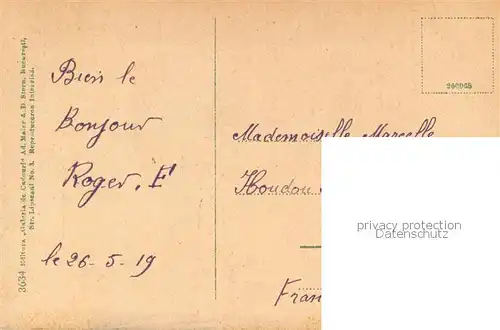 3634 Editura „Galeria de Cadouri" Ad. Maier & D. Stern, București,
Str. Lipscani No. 3. Reproducerea interzisă.
Bien le
Bonjour
Roger. F
le 26-5-19
286068
Mademoiselle Marcelle
Houdou
Fran
privacy protection
Datenschutz